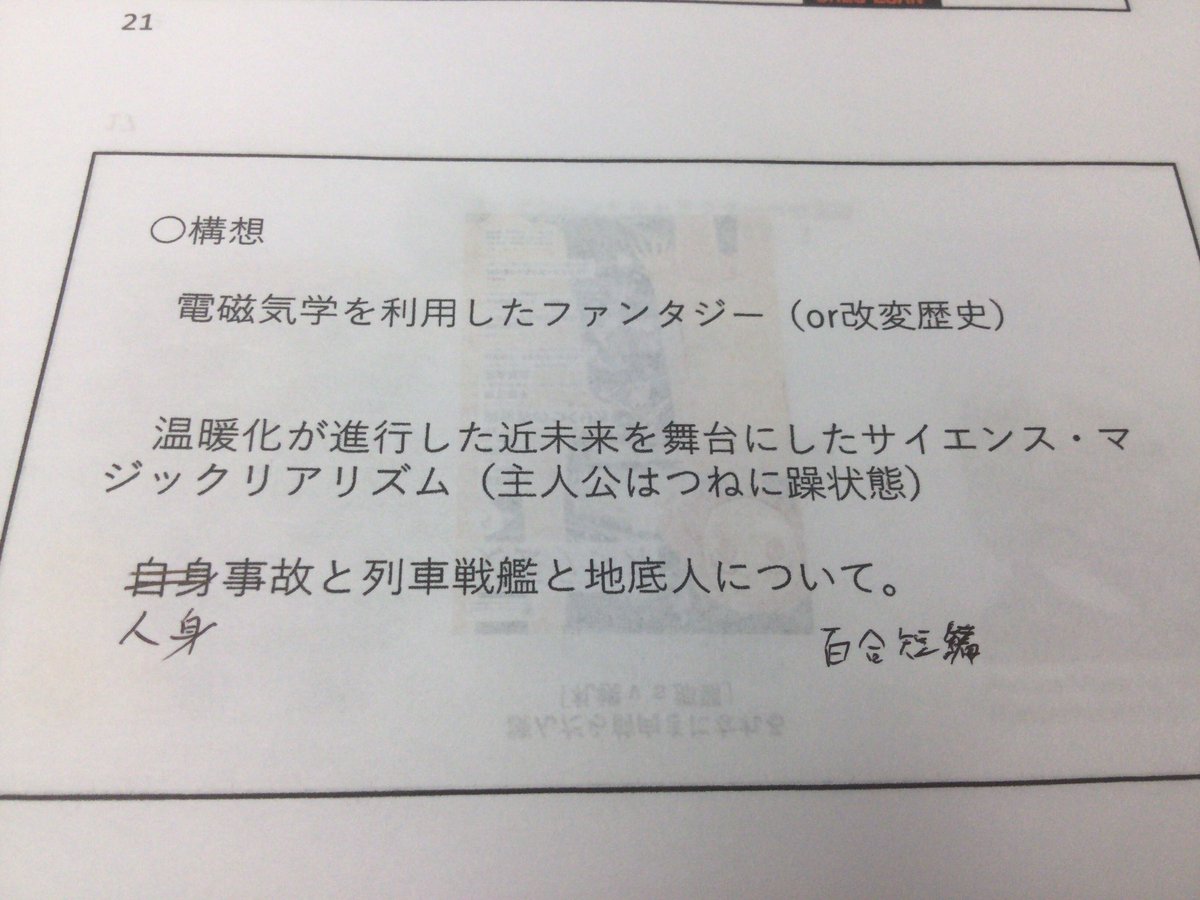 21
○構想
電磁気学を利用したファンタジー（or改変歴史）
温暖化が進行した近未来を舞台にしたサイエンス・マ
ジックリアリズム（主人公はつねに躁状態）
自身事故と列車戦艦と地底人について。
人身
百合短編